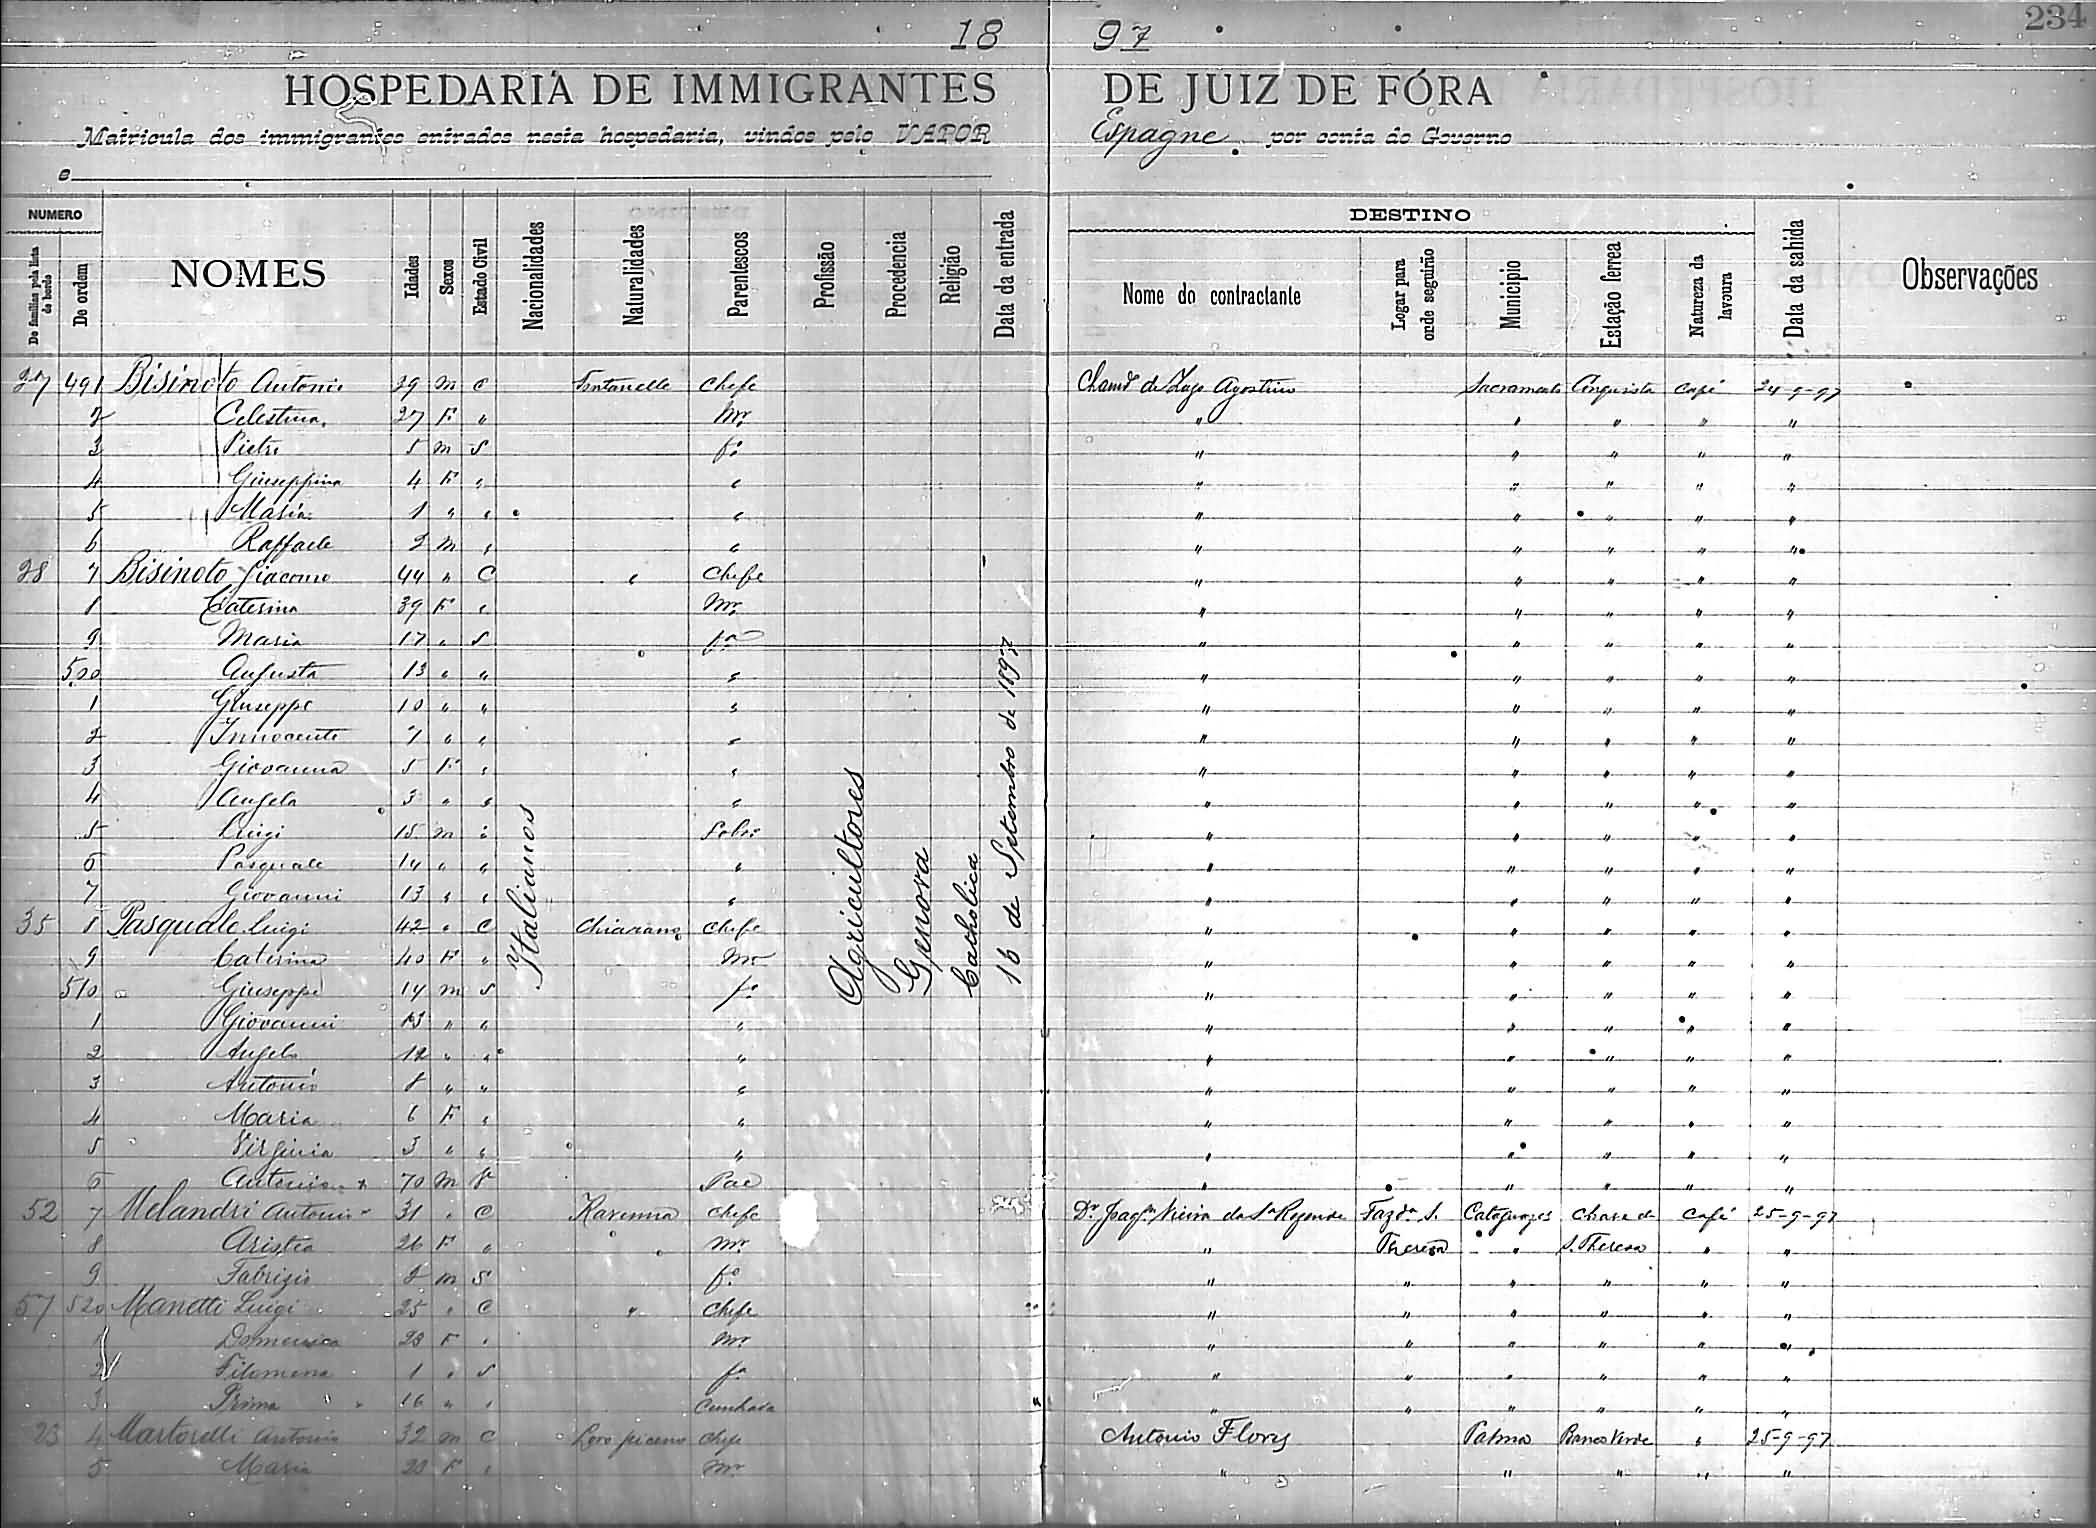 234
18 97
HOSPEDARIA DE IMMIGRANTES DE JUIZ DE FÓRA
Matricula dos immigrantes entrados nesta hospedaria, vindos pelo VAPOR Espagne por conta do Governo
e
NUMERO DESTINO
De familias pela lista de bordo De ordem NOMES Idades Sexos Estado Civil Nacionalidades Naturalidades Parentescos Profissão Procedencia Religião Data da entrada Nome do contractante Logar para onde seguirão Municipio Estação ferrea Natureza da lavoura Data da sahida Observações
Italianos Agricultores Genova Catholica 16 de Setembro de 1897
27 491 Bisinoto Antonio 29 m C Fontanelle Chefe de Agostino Sacramento café 24-9-97
2 Celestina 27 F " Mr " " " " "
3 Pietro 5 m S fº " " " " "
4 Giuseppina 4 F " " " " " " "
5 Maria 1 " " " " " " " "
6 Raffaele 2 m " " " " " " "
28 7 Bisinoto Giacomo 44 " C " Chefe " " " " "
8 Caterina 39 F " Mr " " " " "
9 Maria 17 " S fª " " " " "
500 Augusta 13 " " " " " " " "
1 Giuseppe 10 " " " " " " " "
2 Innocente 7 " " " " " " " "
3 Giovanna 5 F " " " " " " "
4 Angela 3 " " " " " " " "
5 Luigi 15 m " Sobrº " " " " "
6 Pasquale 14 " " " " " " " "
7 Giovanni 13 " " " " " " " "
35 8 Pasquale Luigi 42 " C Chiarano Chefe " " " " "
9 Caterina 40 F " Mr " " " " "
510 Giuseppe 14 m S fº " " " " "
1 Giovanni 13 " " " " " " " "
2 Angelo 12 " " " " " " " "
3 Antonio 8 " " " " " " " "
4 Maria 6 F " " " " " " "
5 Virginia 3 " " " " " " " "
6 Antonio 70 m Pae " " " " "
52 7 Melandri Antonio 31 " C Ravenna Chefe Dr Joaqm Vieira da Sª Rezende Fazdª S. Cataguazes Chave de Café 25-9-97
8 Aristea 26 F " Mr " Thereza " S. Thereza " "
9 Fabrizio 2 m S fº " " " " " "
57 520 Manetti Luigi 25 " C " Chefe " " " " " "
1 Domenica 23 F " Mr " " " " " "
2 Filomena 1 " S fª " " " " " "
3 Prima 16 " " Cunhada " " " " " "
23 4 Martorelli Antonio 32 m C Loro piceno Chefe Antonio Flores Palma Banco Verde " 25-9-97
5 Maria 23 F " Mr " " " " "